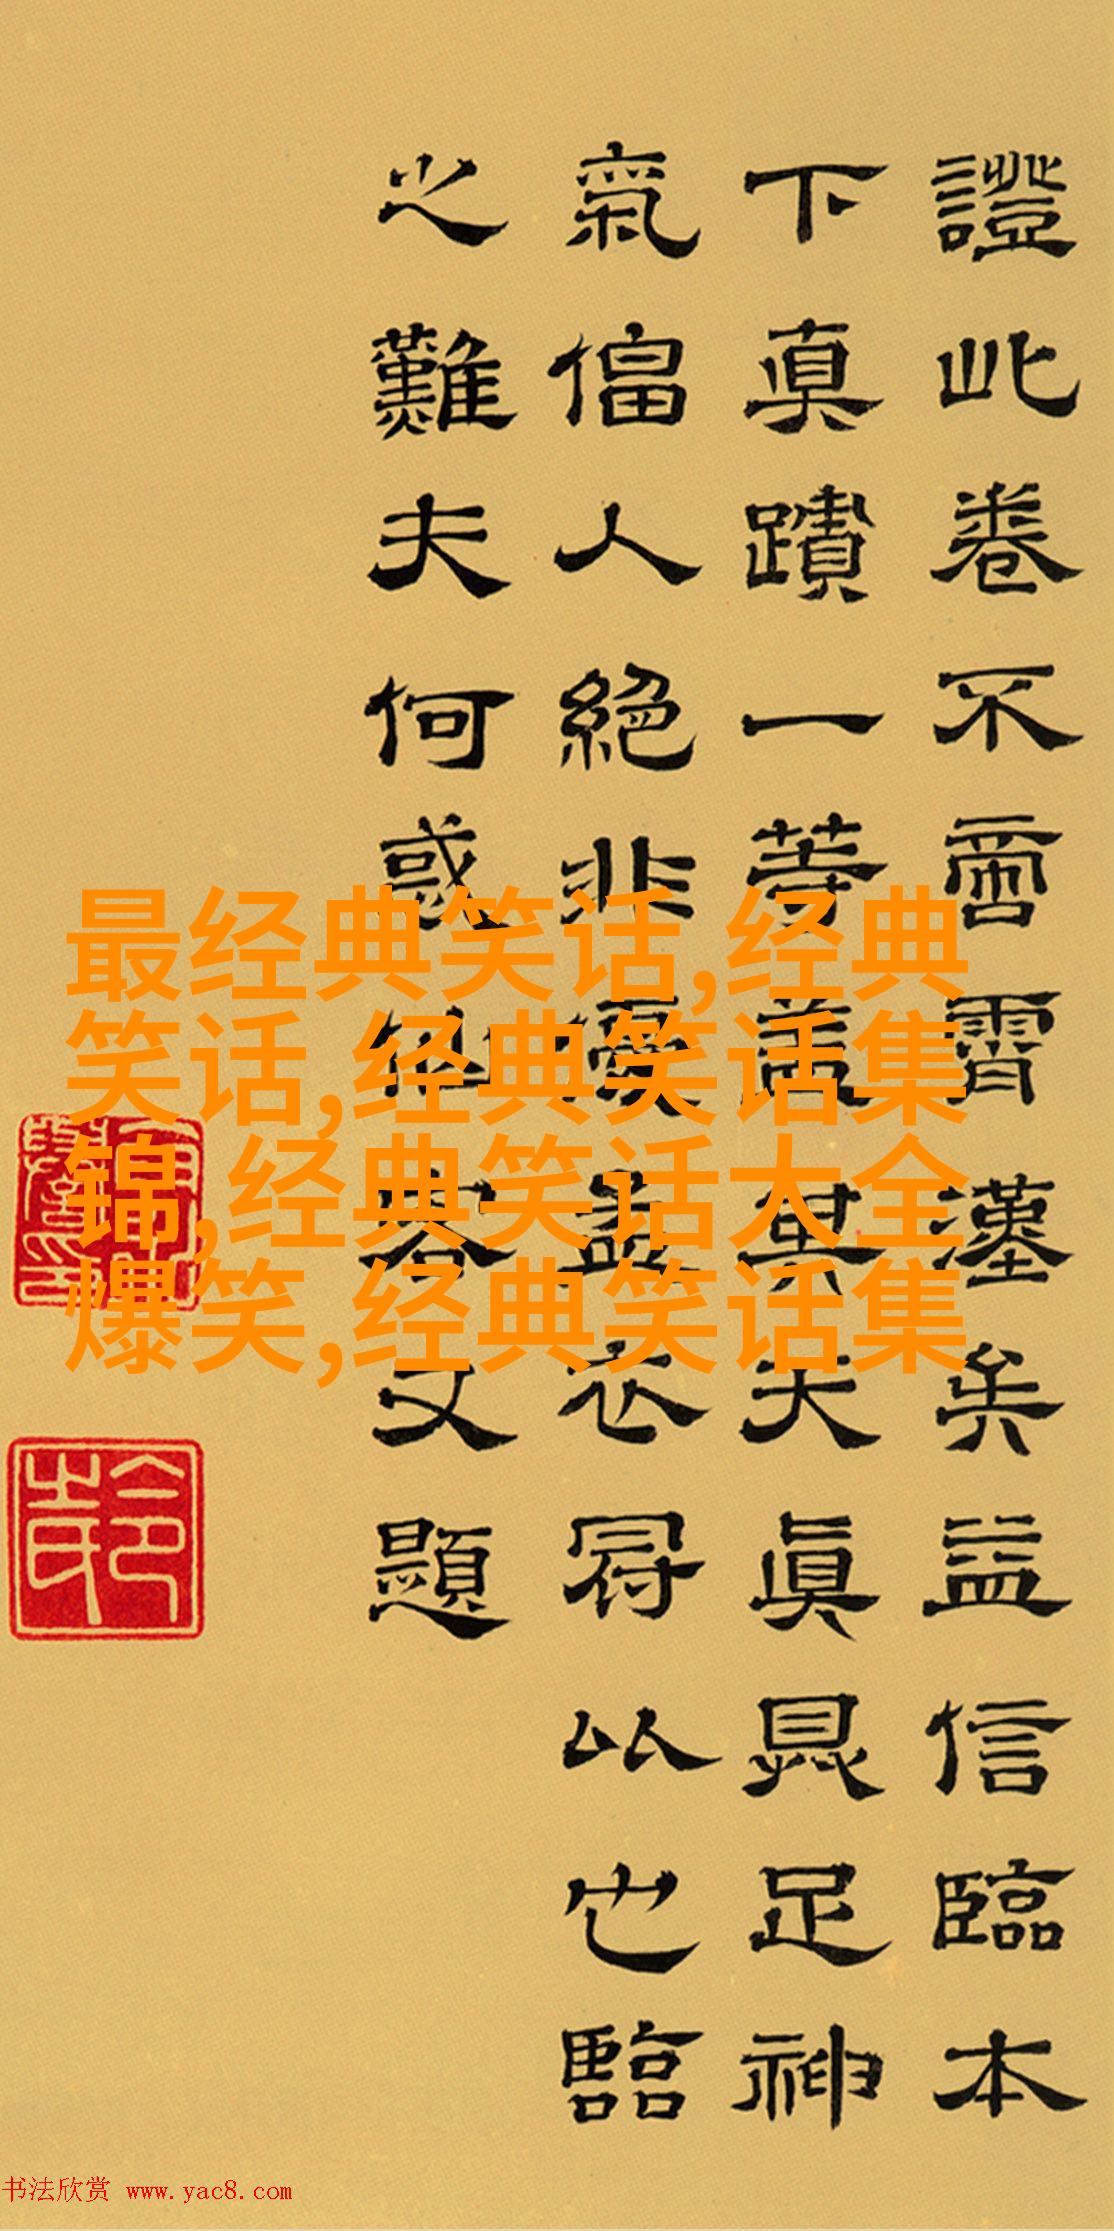 證此卷不啻霄漢矣益信臨本
下真蹟一等蓋其夫眞晁足神
氣偪人絕非優孟衣冠以也臨
之難夫何惑似容文題
最经典笑话,经典
笑话,经典笑话集
锦,经典笑话大全
爆笑,经典笑话集
书法欣赏 www.yac8.com